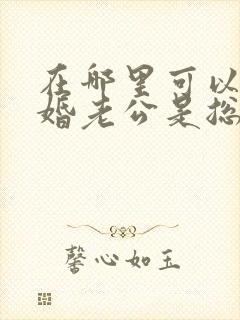 在哪里可以
婚老公是总
馨心如玉